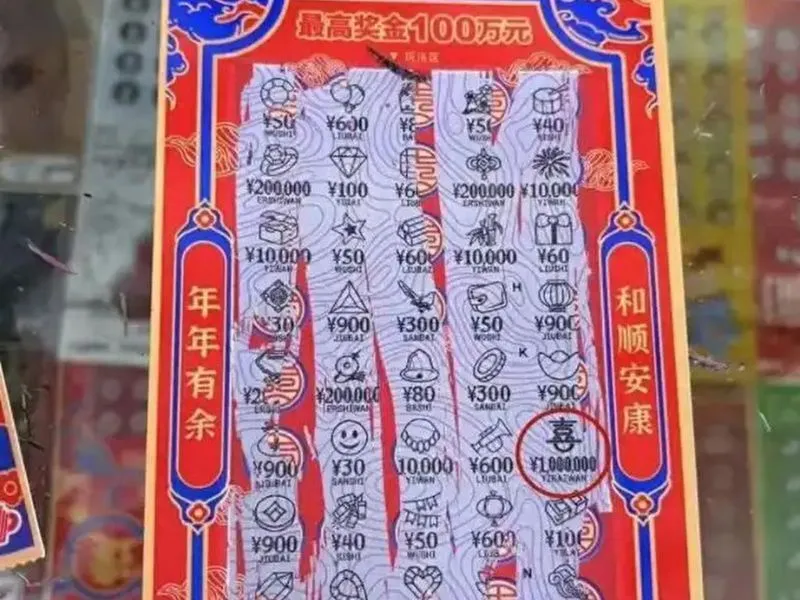 最高奖金100万元
▼ 玩法区
年年有余
和顺安康
¥50 ¥600 ¥8 ¥50 ¥40
WUSHI LIUBAI BA WUSHI SISHI
¥200,000 ¥100 ¥6 ¥200,000 ¥10,000
ERSHIWAN YIBAI ERSHIWAN YIWAN
¥10,000 ¥50 ¥600 ¥10,000 ¥60
YIWAN WUSHI LIUBAI YIWAN LIUSHI
H
¥30 ¥900 ¥300 ¥50 ¥900
SANSHI JIUBAI SANBAI WUSHI JIUBAI
K
¥20 ¥200,000 ¥80 ¥300 ¥900
ERSHI ERSHIWAN BASHI SANBAI JIUBAI
喜
¥900 ¥30 10,000 ¥600 ¥1,000,000
JIUBAI SANSHI YIWAN LIUBAI YIBAIWAN
¥900 ¥40 ¥50 ¥600 ¥100
JIUBAI SISHI WUSHI LIUB YIBAI
N